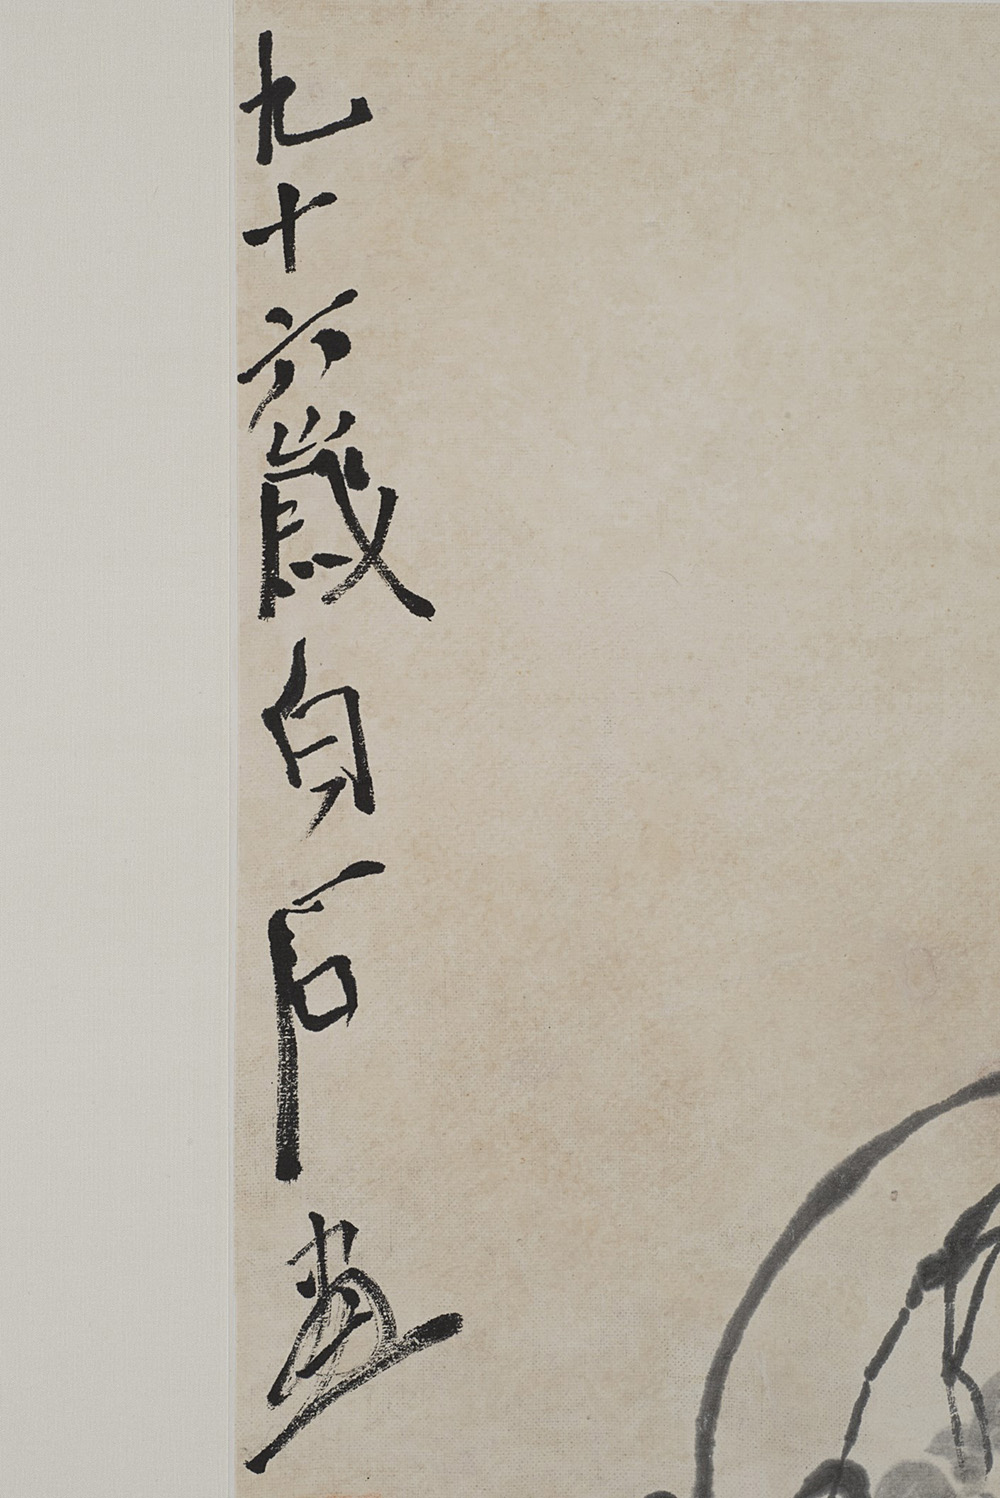 九十六歲白石畫